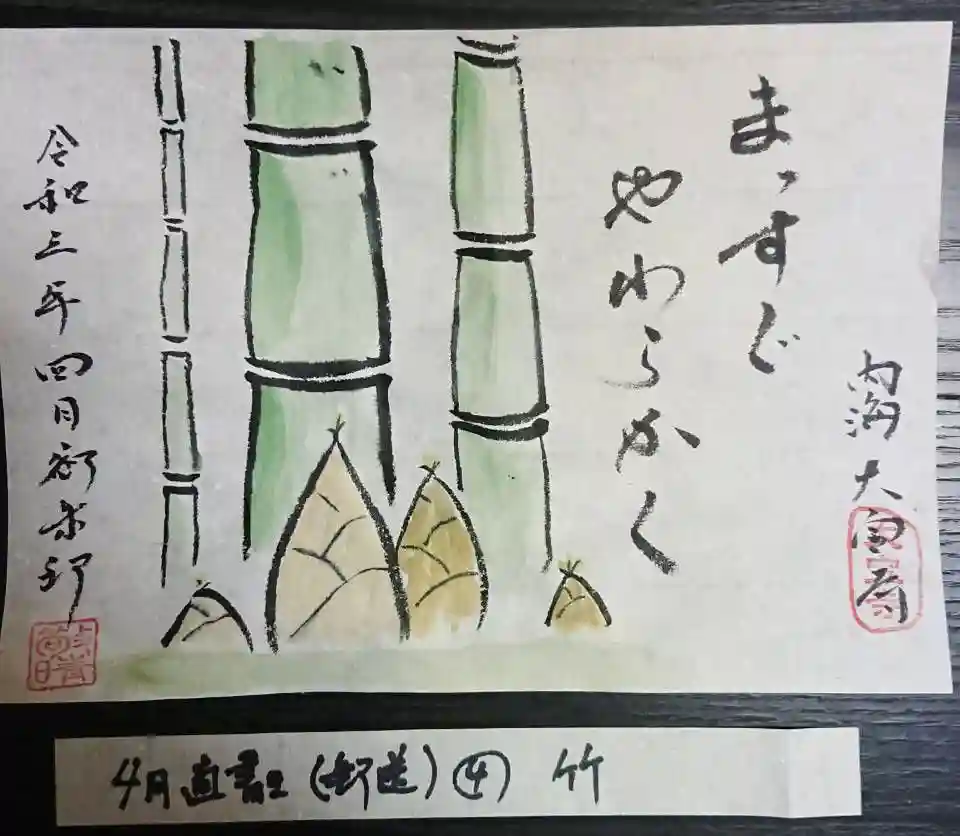 まっすぐ
やわらかく
内海 大宝寺
令和三年四月御朱印
4月直書き(郵送)④ 竹